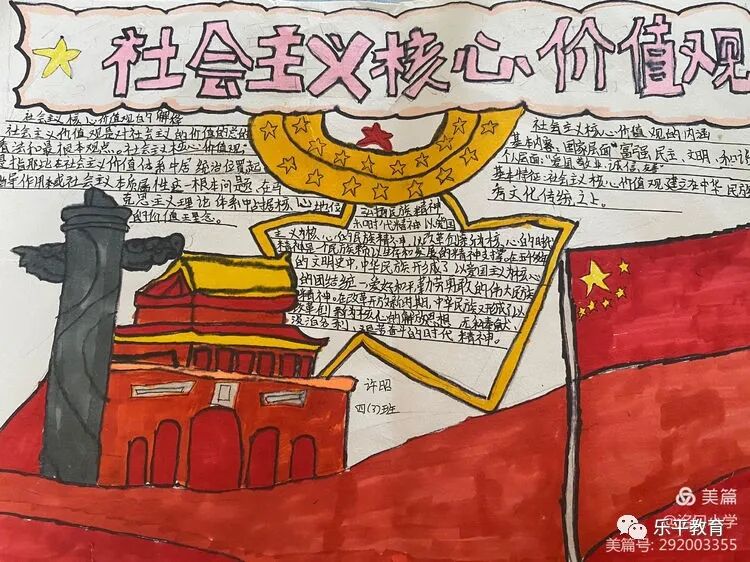 社会主义核心价值观
社会主义核心价值观的了解
社会主义价值观是对社会主义的价值的总的
看法和最根本观点。社会主义核心价值观
是指那些在社会主义价值体系中居统治位置起
导作用 成社会主义本质属性 一根本问题,在
克思主义理论体系中占据核心地位
的价值理念。
民族精神
和时代精神以爱国
主义为核心的民族精神,以改革创新为核心的时代
精神是一个民族赖以 存发展的精神支撑。在五千
的文明史中,中华民族形成了以爱国主义为核心
的团结统一爱好和平勤劳勇敢的伟大民族
精神。在改革开放新时期,中华民族又形成了以
改革创 为核心的解放思想
时代精神。
社会主义核心价值观的内涵
基本内容:国家层面"富强、民主、文明、和谐
个人层面:"爱国、敬业、诚信、友善"
基本特征:社会主义核心价值观,建立在中华民族
秀文化传统之上。
许昭
四(3)班
美篇
乐平教育
美篇号: 292003355